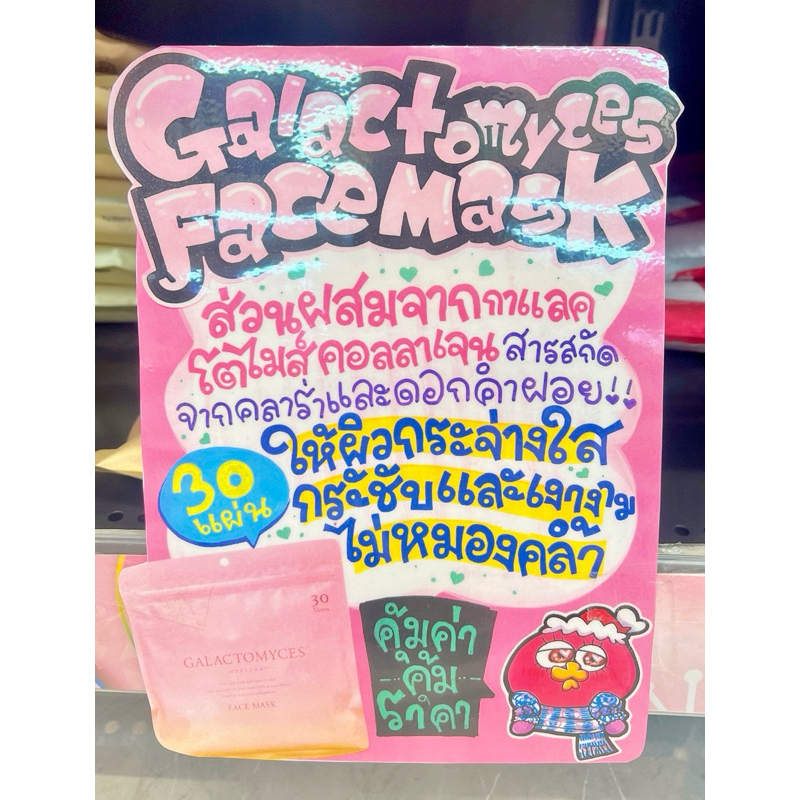 Galactomyces
Face Mask
ส่วนผสมจากกาแลค
โตไมส์ คอลลาเจน สารสกัด
จากคลาร่าและดอกคำฝอย!!
ให้ผิวกระจ่างใส
กระชับและเงางาม
ไม่หมองคล้ำ
30
แผ่น
30
GALACTOMYCES
FACE MASK
คุ้มค่า
คุ้ม
ราคา